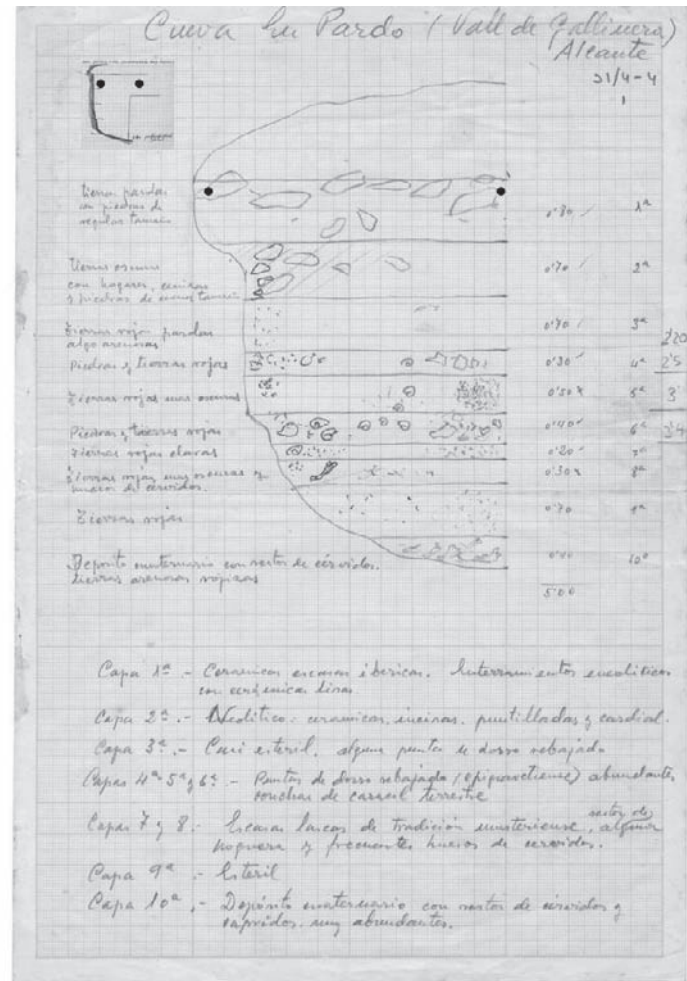 Cueva En Pardo (Vall de Gallinera)
Alicante
21/4-4
1
tierras pardas
con piedras de
regular tamaño
0'80 1ª
Tierras oscuras
con hogares, cenizas
y piedras de menos tamaño
0'70 2ª
Tierras rojas pardas
algo arenosas
0'70 3ª
2'20
Piedras y tierras rojas
0'30 4ª 2'5
Tierras rojas mas oscuras
0'50 5ª 3
Piedras y tierras rojas
0'40 6ª 3'4
Tierras rojas claras
0'20 7ª
Tierras rojas mas oscuras y
huesos de cérvidos.
0'30 8ª
Tierras rojas
0'70 9ª
Deposito cuaternario con restos de cérvidos.
tierras arenosas rojizas
0'40 10º
5'00
Capa 1ª - Ceramicas escasas ibéricas. Enterramientos eneoliticos
con cerámicas lisas
Capa 2ª.- Neolitico. ceramicas, incisas, puntilladas y cardial.
Capa 3ª.- Casi esteril, alguna punta de dorso rebajado
Capas 4ª-5ª y 6ª - Puntas de dorso rebajado (epigravetiense) abundantes
conchas de caracol terrestre
Capas 7 y 8.- Escasas lascas de tradición musteriense, restos de alguna
hoguera y frecuentes huesos de cérvidos.
Capa 9ª.- Esteril
Capa 10ª.- Depósito cuaternario con restos de cérvidos y
capridos muy abundantes.